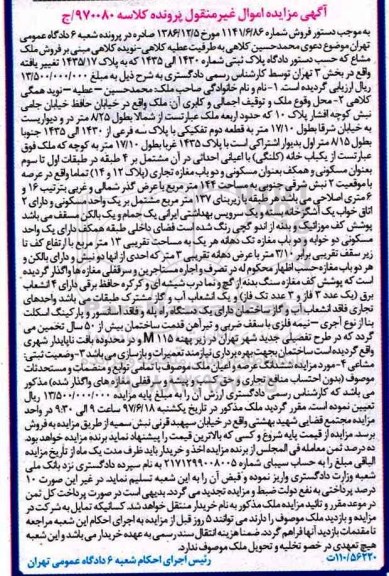 آگهی مزایده اموال غیرمنقول پرونده کلاسه ۹۷۰۰۸۰/ج
به موجب دستور فروش شماره ۱۱۴۱/۶/۸۶ مورخ ۱۳۸۶/۱۲/۵ صادره در پرونده شعبه ۶ دادگاه عمومی
تهران موضوع دعوی محمدحسین کلاهی به طرفیت عطیه کلاهی-نویده کلاهی مبنی بر فروش ملک
مشاع که حسب دستور دادگاه پلاک ثبتی شماره ۱۴۳۰ الی ۱۴۳۵ که به پلاک ۱۴۳۵/۱۷ تغییر یافته
واقع در بخش ۳ تهران توسط کارشناس رسمی دادگستری به شرح ذیل به مبلغ ۱۳/۵۰۰/۰۰۰/۰۰۰
ریال ارزیابی گردیده است. ۱-نام و نام خانوادگی صاحب ملک: محمدحسین – عطیه – نوید همگی
کلاهی ۲- محل وقوع ملک و توقیف اجمالی و کاربری آن: ملک واقع در خیابان حافظ خیابان جامی
نبش کوچه افشار پلاک ۱۰ که حدود اربعه ملک عبارتست از شمالا بطول ۸/۲۵ متر در و دیواریست
به خیابان شرقا بطول ۱۷/۱۰ متر به قطعه دوم تفکیکی با پلاک سه فرعی از ۱۴۳۰ الی ۱۴۳۵ جنوبا
بطول ۸/۱۵ متر اول بدیوار اشتراکی است با پلاک ۱۴۳۵ غربا بطول ۱۷/۱۰ متر به کوچه که ملک فوق
عبارتست از یکباب خانه (کلنگی) با اعیانی احداثی در آن مشتمل بر ۴ طبقه در طبقات اول تا سوم
بعنوان مسکونی و همکف بعنوان مسکونی و دو باب مغازه تجاری (پلاک ۱۲ و ۱۴) تماما واقع در عرصه
با موقعیت ۲ نبش شمالی جنوبی به مساحت ۱۴۳ متر مربع با عرض گذر شمالی و غربی بترتیب ۱۶ و
۶ متری اصلاحی می باشد هر طبقه با زیربنای ۱۳۷ متر مربع مشتمل بر یک واحد مسکونی و دارای ۲
اتاق خواب یک آشپزخانه بسته و یک سرویس بهداشتی ایرانی یک حمام و یک بالکن مسقف می باشد
پوشش کف موزائیک و بدنه از اندو گچی رنگ شده است فضای داخلی طبقه همکف دارای یک واحد
مسکونی دو خوابه و دو باب مغازه تک دهانه هر یک به مساحت تقریبی ۱۳ متر مربع با ارتفاع کف تا
زیر سقف تقریبی برابر ۳/۱۰ متر با عرض دهانه تقریبی ۳ متر که احدی از آنها دو نبش و دارای بالکن و
هر دو باب مغازه حسب اظهار محکوم له در تصرف و اجاره مستاجرین و سرقفلی مغازه ها واگذار گردیده
است که پوشش کف مغازه سنگ بدنه از گچ و نما درب شیشه ای و کرکره حفاظ برقی دارای ۴ انشعاب
برق (یک عدد ۳ فاز و ۳ عدد تک فاز) و یک انشعاب آب و گاز مشترک طبقات می باشد واحدهای
تجاری فاقد انشعاب آب و گاز ساختمان دارای یک دستگاه راه پله و فاقد آسانسور و پارکینگ اسکلت
بنا از نوع آجری – نیمه فلزی با سقف ضربی و تیرآهن قدمت ساختمان بیش از ۵۰ سال تخمین می
گردد که در طرح تفصیلی جدید شهر تهران در زیر پهنه M ۱۱۵ و در محدوده بافت ناپایدار شهری
واقع گردیده است ساختمان بجهت بهره برداری نیازمند تعمیرات و بازسازی می باشد ۳-وضعیت ثبتی:
مشاعی ۴-مورد مزایده: ششدانگ عرصه و اعیان ملک موصوف با تمامی توابع و منضمات و مستحدثات
موصوف (بدون احتساب منافع تجاری و حق کسب و پیشه و سرقفلی مغازه های واگذار شده) مذکور
می باشد که کارشناس رسمی دادگستری ارزش آن را به مبلغ پایه مزایده ۱۳/۵۰۰/۰۰۰/۰۰۰ ریال
تعیین نموده است. مقرر گردید ملک مذکور در تاریخ یکشنبه ۹۷/۶/۱۸ ساعت ۹ الی ۹:۳۰ در واحد
مزایده مجتمع قضایی شهید بهشتی واقع در خیابان سپهبد قرنی نبش سمیه از طریق مزایده به فروش
برسد. مزایده از قیمت پایه شروع و کسی که بالاترین قیمت را پیشنهاد نماید برنده مزایده خواهد بود.
ده درصد ثمن معامله فی المجلس از برنده مزایده اخذ و خریدار باید ظرف مدت یک ماه از تاریخ مزایده
الباقی مبلغ را به حساب سیبای شماره ۲۱۷۱۲۹۹۰۰۸۰۰۵ به نام سپرده دادگستری نزد بانک ملی
شعبه وزارت دادگستری واریز نموده و قبض آن را به این شعبه تسلیم نماید. در غیر این صورت ۱۰
درصد پرداختی به نفع دولت ضبط و مزایده تجدید می گردد. بدیهی است در صورت پرداخت کل ثمن
در موعد مقرر و تائید مزایده ملک مذکور به نام خریدار منتقل خواهد شد. کسانیکه تمایل به شرکت در
مزایده و بازدید ملک موصوف را دارند می توانند ۵ روز قبل از مزایده به اجرای احکام این شعبه مراجعه
تا مقدمات بازدید آنها فراهم گردد. ضمنا هزینه انتقال سند رسمی به عهده خریدار می باشد و این شعبه
هیچ تعهدی در خصوص تخلیه و تحویل ملک موصوف ندارد.
۱۱۰/۵۶۲۲۰ت رئیس اجرای احکام شعبه ۶ دادگاه عمومی تهران